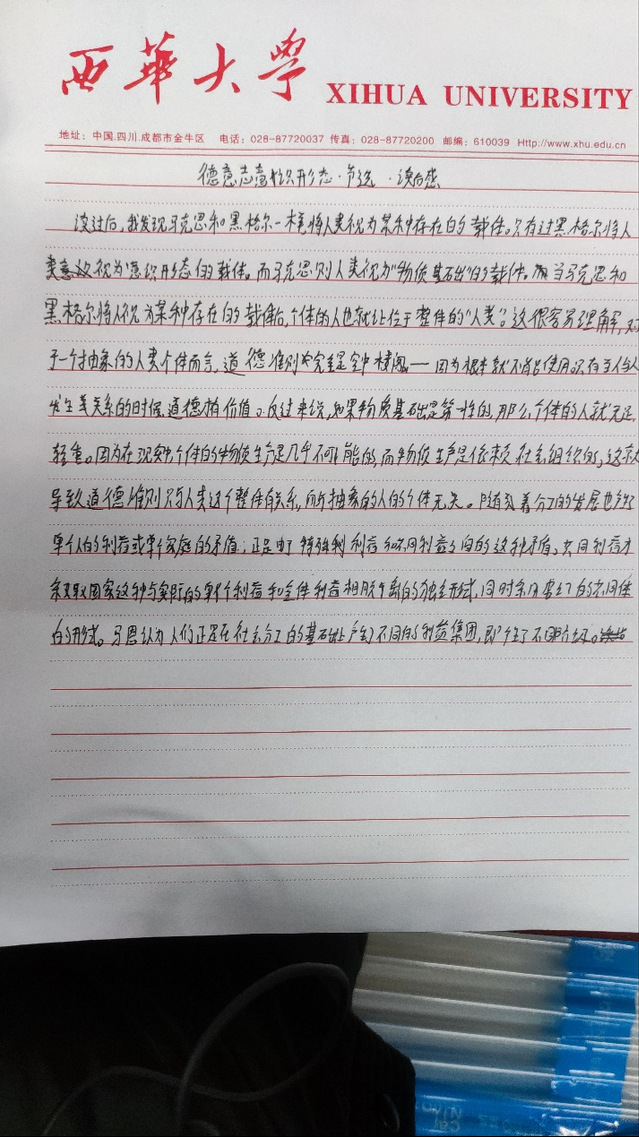 西華大學 XIHUA UNIVERSITY
地址：中国.四川.成都市金牛区 电话：028-87720037 传真：028-87720200 邮编：610039 Http://www.xhu.edu.cn
德意志意识形态·节选·读后感
读过后，我发现马克思和黑格尔一样将人类视为某种存在的载体。只有过黑格尔将人
类视为意识形态的载体。而马克思则人类视为"物质基础出"的载体。当马克思和
黑格尔将人视为某种存在的载体后，个体的人也就让位于整体的"人类"。这很容易理解，对
于一个抽象的人类个体而言，道德准则完全是空中楼阁——因为根本就不能使用。只有当人与人
发生关系的时候，道德才有价值。反过来说，如果物质基础是第一性的，那么，个体的人就无足
轻重。因为在现实中个体的物质生产是几乎不可能的，而物质生产是依赖社会组织的，这亦
导致道德准则只与人类这个整体有关系，而与抽象的人的个体无关。随着分工的发展也产生
单个人的利益或单个家庭的矛盾；正是由于特殊利益和共同利益之间的这种矛盾，共同利益才
采取国家这种与实际的单个利益和全体利益相脱离的独立形式，同时采用虚幻的共同体
的形式。马恩认为人们正是在社会分工的基础上产生了不同的利益集团，即产生了不同阶级。